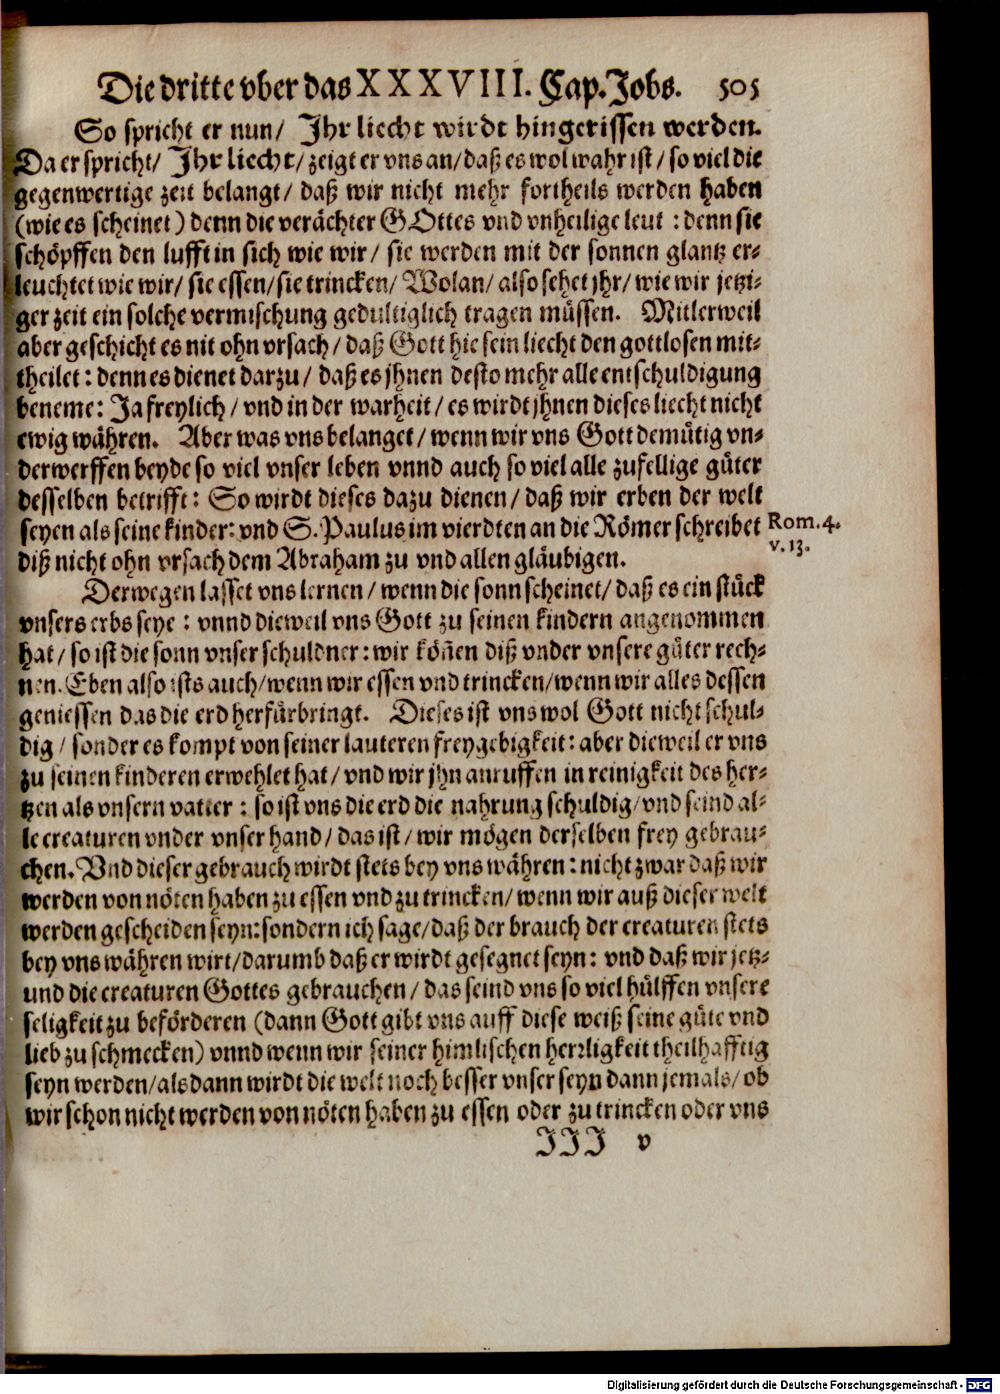 Die dritte vber das XXXVIII. Cap. Jobs. 505
So spricht er nun/ Ihr liecht wirdt hingerissen werden.
Da er spricht/ Ihr liecht/ zeigt er vns an/ daß es wol wahr ist/ so viel die
gegenwertige zeit belangt/ daß wir nicht mehr fortheils werden haben
(wie es scheinet) denn die verächter GOttes vnd vnheilige leut : denn sie
schöpffen den lufft in sich wie wir/ sie werden mit der sonnen glantz er-
leuchtet wie wir/ sie essen/ sie trincken/ Wolan/ also sehet jhr/ wie wir jetzi-
ger zeit ein solche vermischung gedultiglich tragen müssen. Mitlerweil
aber geschicht es nit ohn vrsach/ daß Gott hie sein liecht den gottlosen mit-
theilet : denn es dienet darzu/ daß es jhnen desto mehr alle entschuldigung
beneme: Ja freylich/ vnd in der warheit/ es wirdt jhnen dieses liecht nicht
ewig währen. Aber was vns belanget/ wenn wir vns Gott demütig vn-
derwerffen beyde so viel vnser leben vnnd auch so viel alle zufellige güter
desselben betrifft: So wirdt dieses dazu dienen/ daß wir erben der welt
seyen als seine kinder: vnd S. Paulus im vierdten an die Römer schreibet
Rom. 4. v. 13.
diß nicht ohn vrsach dem Abraham zu vnd allen gläubigen.
Derwegen lasset vns lernen/ wenn die sonn scheinet/ daß es ein stück
vnsers erbs seye : vnnd dieweil vns Gott zu seinen kindern angenommen
hat/ so ist die sonn vnser schuldner: wir köñen diß vnder vnsere güter rech-
nen. Eben also ists auch/ wenn wir essen vnd trincken/ wenn wir alles dessen
geniessen das die erd herfürbringt. Dieses ist vns wol Gott nicht schul-
dig/ sonder es kompt von seiner lauteren freygebigkeit: aber dieweil er vns
zu seinen kinderen erwehlet hat/ vnd wir jhn anruffen in reinigkeit des her-
tzen als vnsern vatter : so ist vns die erd die nahrung schuldig/ vnd seind al-
le creaturen vnder vnser hand/ das ist/ wir mögen derselben frey gebrau-
chen. Vnd dieser gebrauch wirdt stets bey vns währen: nicht zwar daß wir
werden von nöten haben zu essen vnd zu trincken/ wenn wir auß dieser welt
werden gescheiden seyn: sondern ich sage/ daß der brauch der creaturen stets
bey vns währen wirt/ darumb daß er wirdt gesegnet seyn: vnd daß wir jetz-
und die creaturen Gottes gebrauchen/ das seind vns so viel hülffen vnsere
seligkeit zu beförderen (dann Gott gibt vns auff diese weiß seine güte vnd
lieb zu schmecken) vnnd wenn wir seiner himlischen herrligkeit theilhafftig
seyn werden/ als dann wirdt die welt noch besser vnser seyn dann jemals/ ob
wir schon nicht werden von nöten haben zu essen oder zu trincken oder vns
JJJ v
Digitalisierung gefördert durch die Deutsche Forschungsgemeinschaft - DFG